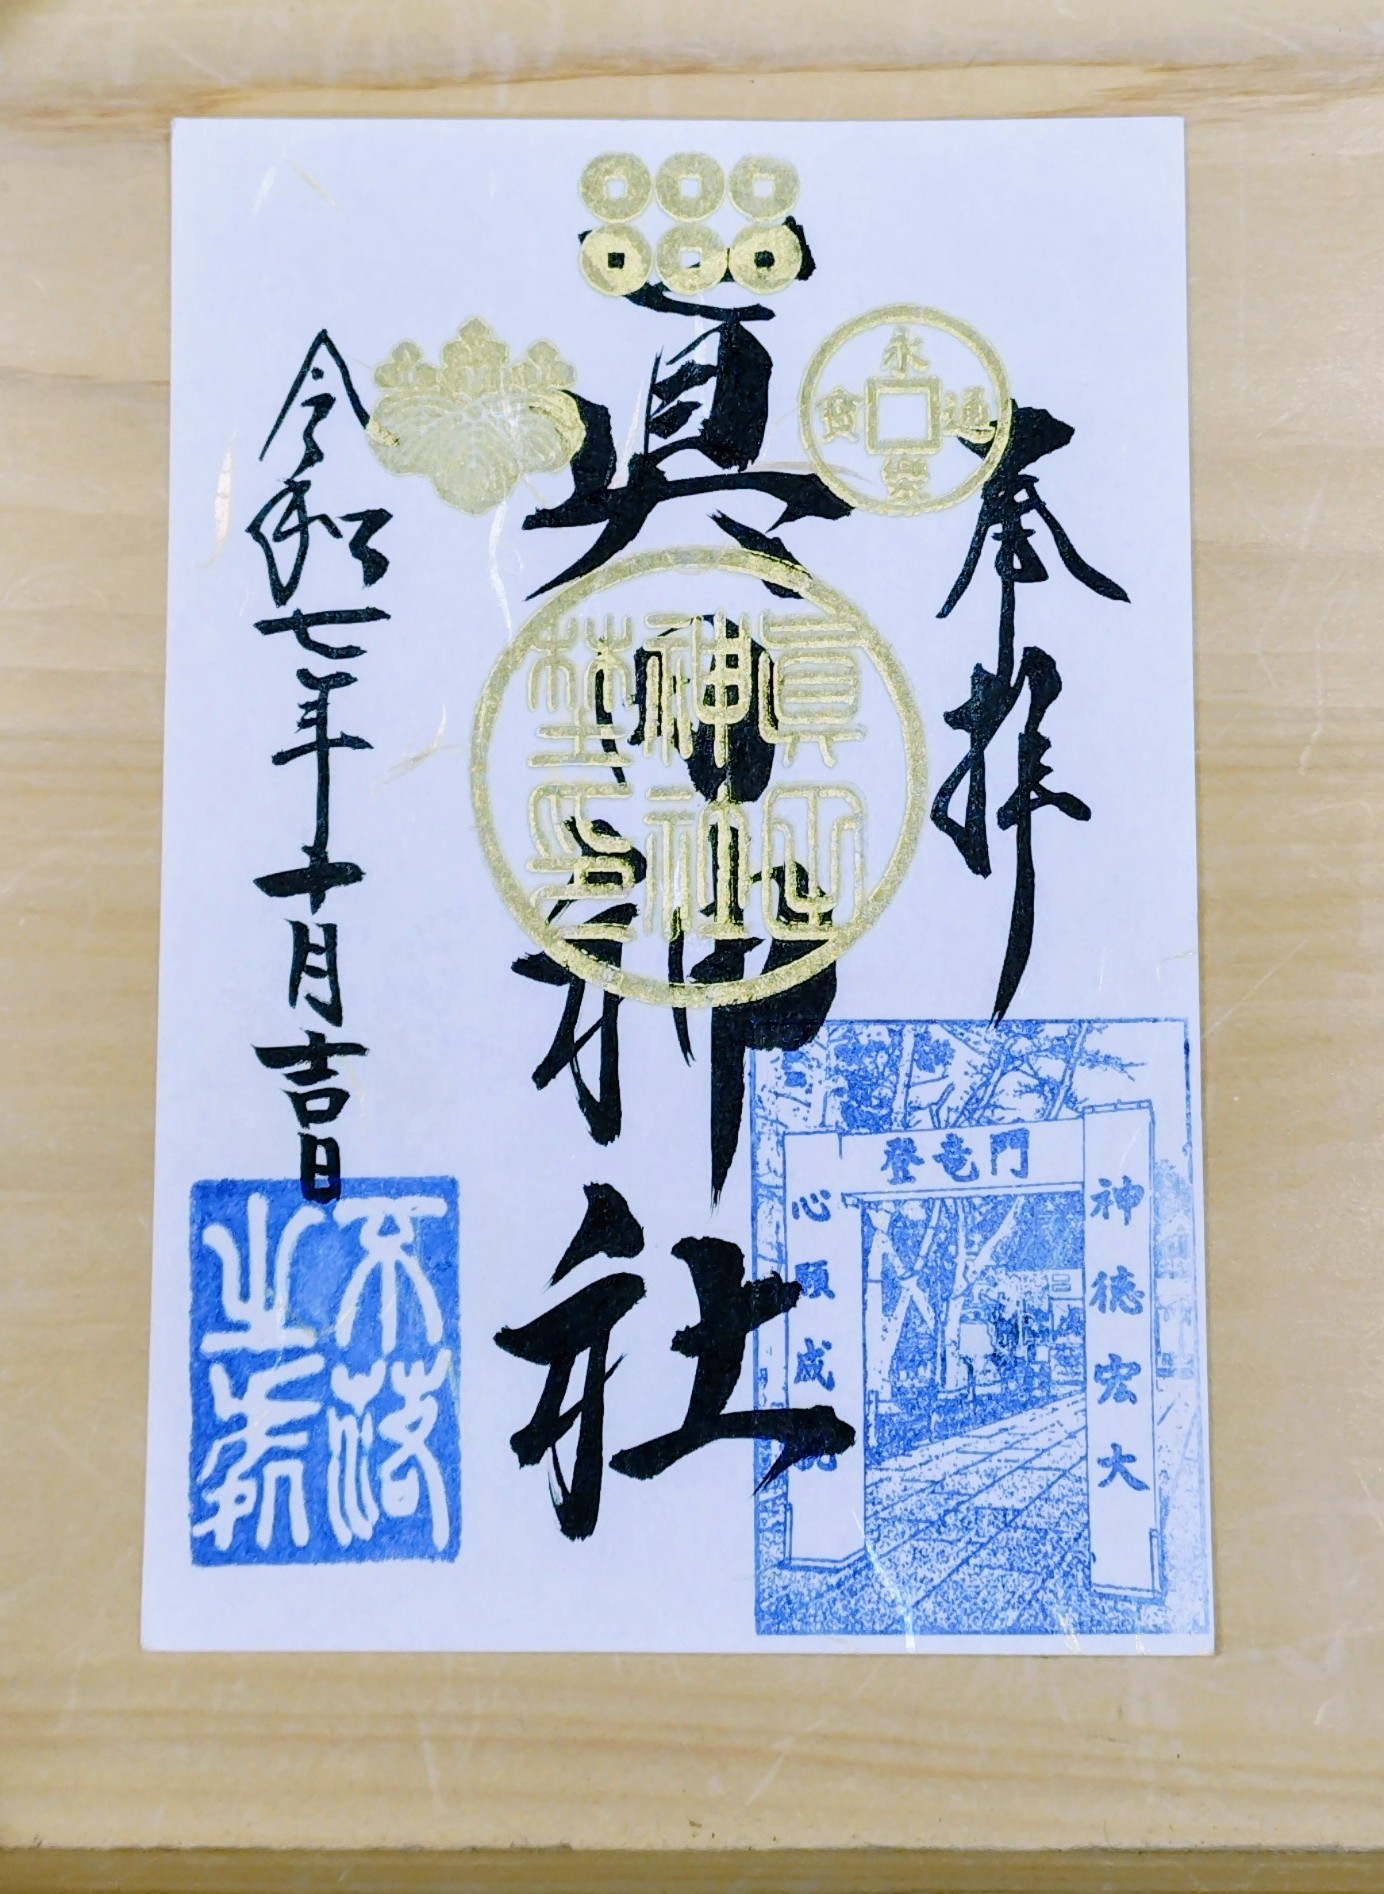 奉拝
永樂通寳
眞田神社
眞田神社
令和七年十月吉日
登竜門
神徳宏大
心願成就
不落之